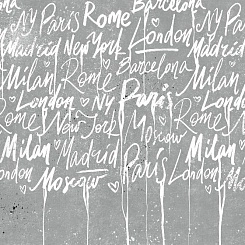 Barcelona
NY Paris Rome NY Paris
Madrid New York London Madrid
Milan Rome Barcelona Milan Rome
London NY Paris London
Rome New York Moscow Rome New York
Milan Madrid Paris Milan
Moscow London